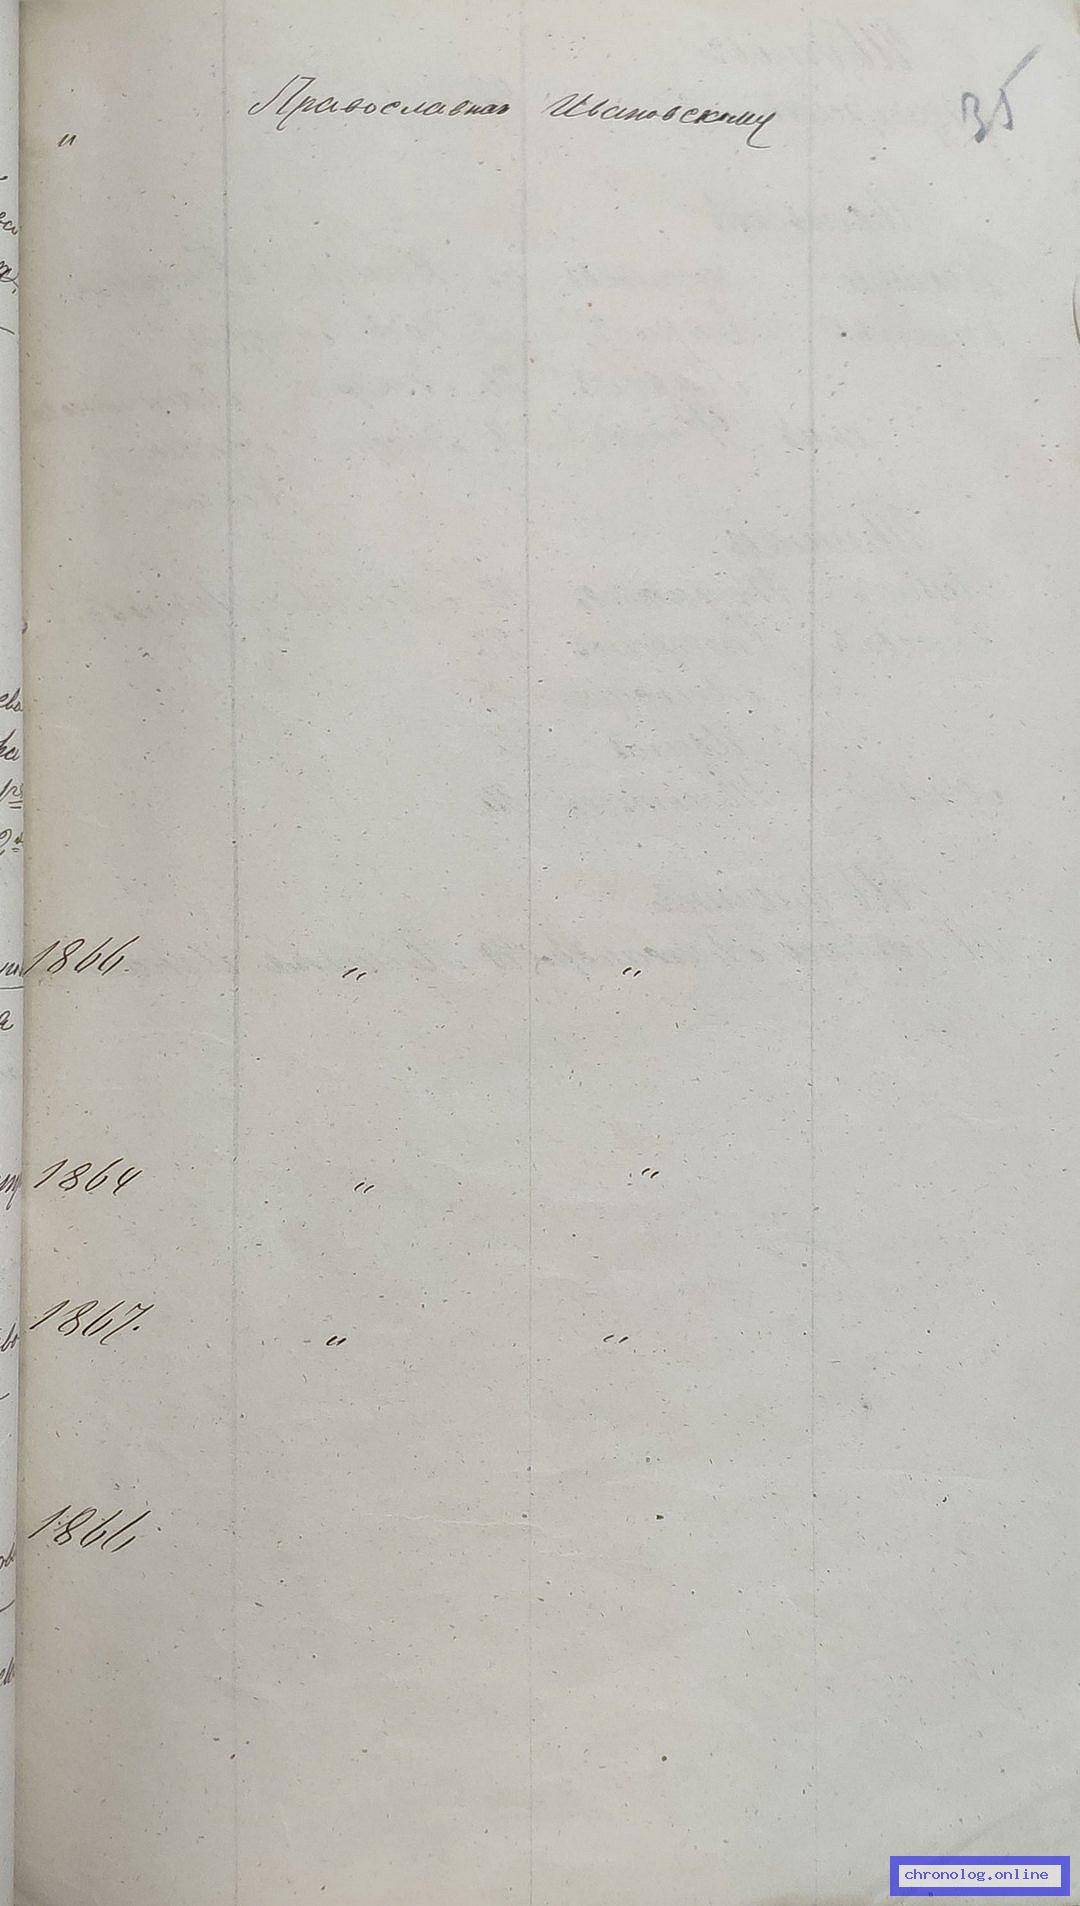 35
Православная Ивановскому
"
1866. " "
1864 " "
1867. " "
1866
chronolog.online